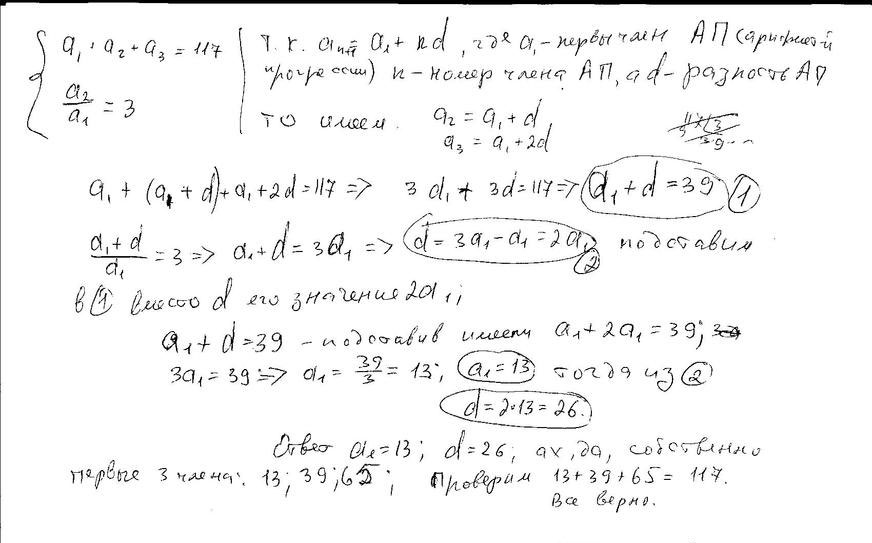 a₁ + a₂ + a₃ = 117
a₂/a₁ = 3
Т.к. aₙ₊₁ = a₁ + nd, где a₁ - первы член АП (арифмет-й
прогрессии) n - номер члена АП, а d - разность АП
то имеем. a₂ = a₁ + d
a₃ = a₁ + 2d
a₁ + (a₁ + d) + a₁ + 2d = 117 => 3a₁ + 3d = 117 => a₁ + d = 39 ①
(a₁ + d)/a₁ = 3 => a₁ + d = 3a₁ => d = 3a₁ - a₁ = 2a₁ ② подставим
в ① вместо d его значение 2a₁;
a₁ + d = 39 - подставив имеем a₁ + 2a₁ = 39;
3a₁ = 39 => a₁ = 39/3 = 13; a₁ = 13 тогда из ②
d = 2•13 = 26.
Ответ a₁ = 13; d = 26; ах, да, собственно
первые 3 члена: 13; 39; 65; Проверим 13 + 39 + 65 = 117.
Все верно.